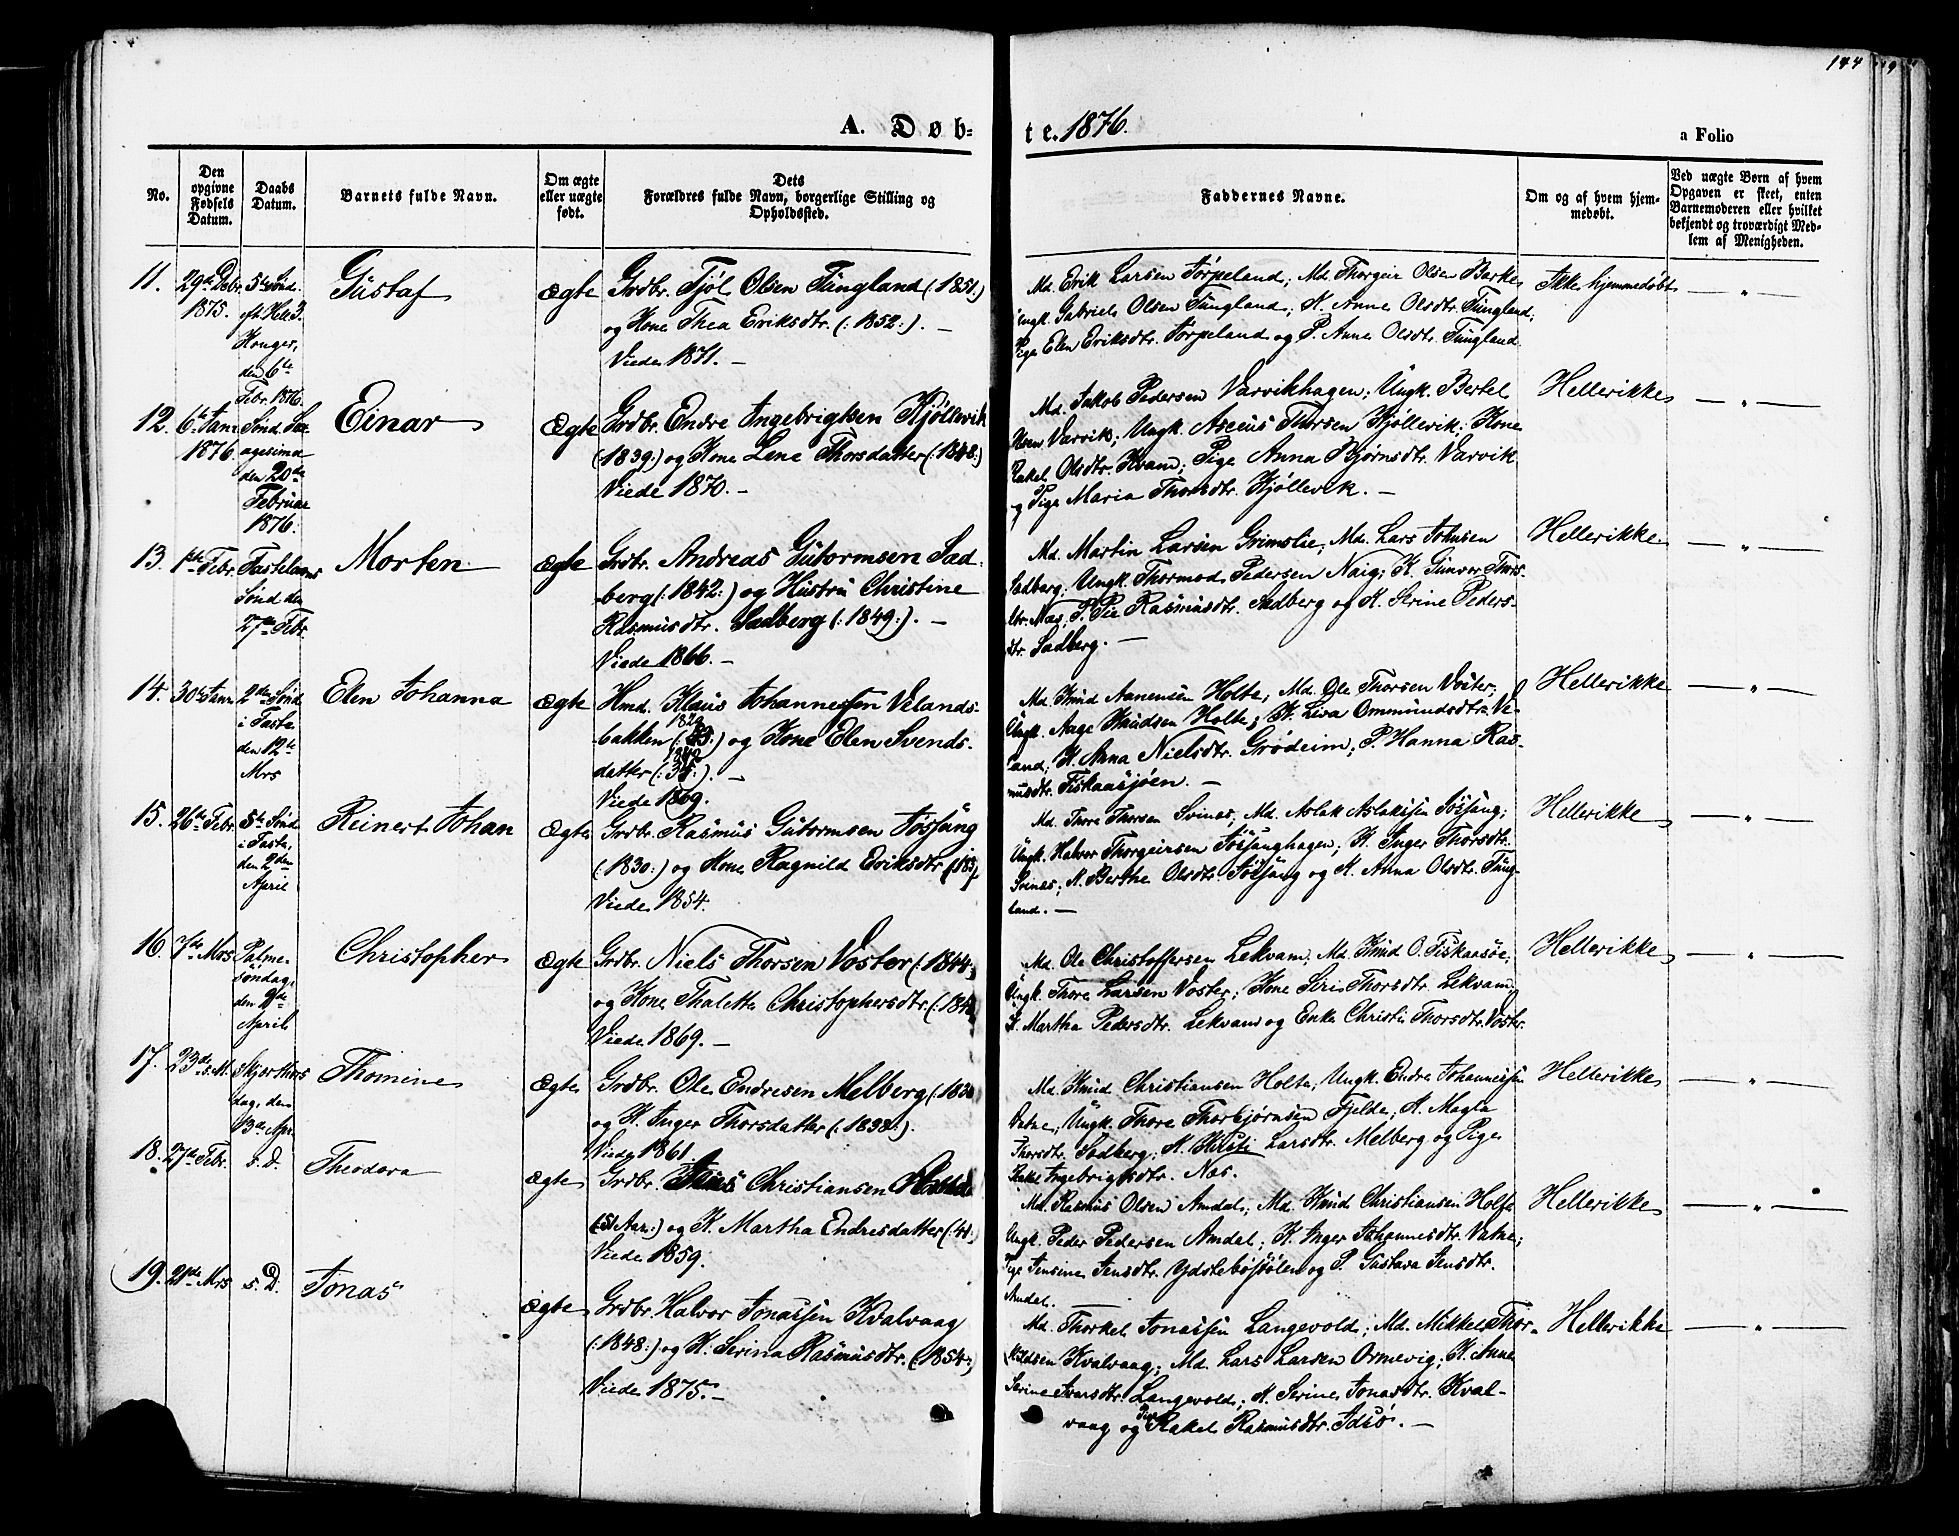 144
A. Døb-
te. 1876.
a Folio
No.
Den opgivne Fødsels Datum.
Daabs Datum.
Barnets fulde Navn.
Om ægte eller uægte født.
Dets Forældres fulde Navn, borgerlige Stilling og Opholdssted.
Faddernes Navne.
Om og af hvem hjem-
medøbt.
Ved uægte Børn af hvem
Opgaven er skeet, enten
Barnemoderen eller hvilket
bekjendt og troværdigt Med-
lem af Menigheden.
11.
29de Debr.
1875.
5te Sønd.
eft. Hell. 3.
Konger,
den 6te
Febr. 1876.
Gustaf
Ægte
Grdbr. Tjøl Olsen Tungland (:1851:)
og Kone Thea Eriksdtr. (:1852:). —
Viede 1871. —
Md. Erik Larsen Tørpeland; Md. Thorgeir Olsen Barke;
Ungk. Gabriel Olsen Tungland; K. Anne Olsdtr. Tungland;
Pige Elen Eriksdtr. Tørpeland og P. Anne Olsdtr. Tungland
Ikke hjemmedøbt
— „ —
12.
6te Janr
1876.
Sønd. Sex-
agesima
den 20de
Februar
1876.
Einar
Ægte
Grdbr. Endre Ingebrigtsen Kjøllevik
(1839:) og Kone Lene Thorsdatter (:1848:)
Viede 1870. —
Md. Jakob Pedersen Varvikhagen; Ungk. Bertel
Olsen Varvik; Ungk. Asseus Thorsen Kjøllevik; Kone
Rakel Olsdtr. Kvam; Pige Anna Bjørnsdtr. Varvik
og Pige Maria Thorsdtr. Kjøllevik. —
Hellerikke
— „ —
13.
1ste Febr.
Fastelavns
Sønd. den
27de Febr.
Morten
Ægte
Grdbr. Andreas Gutormsen Sad-
berg (:1842:) og Hustru Christine
Rasmusdtr. Sadberg (:1849:). —
Viede 1866. —
Md. Martin Larsen Grimslie; Md. Lars Johnsen
Sadberg; Ungk. Thormod Pedersen Naig; K. Gunvor Thors-
dtr. Næs; P. Pie Rasmusdtr. Sadberg og K. Serine Peders-
dtr. Sadberg. —
Hellerikke
— „ —
14.
30te Janr.
2den Sønd.
i Faste.
den 12te
Mrs
Elen Johanna
Ægte
Hmd. Klaus Johannessen Velands-
bakken (: :) og Kone Elen Svends-
datter (: :). —
Viede 1869.
Md. Knud Aanensen Holte; Md. Ole Thorsen Voster;
Ungk. Aage Knudsen Holte; K. Liva Ommundsdtr. Ve-
land; K. Anna Nielsdtr. Grødeim; P. Hanna Ras-
musdtr. Fiskaasjøen. —
Hellerikke
— „ —
15.
26de Febr.
5te Sønd.
i Faste,
den 2den
April
Reinert Johan
Ægte
Grdbr. Rasmus Gutormsen Jøssang
(:1830:) og Kone Ragnild Eriksdtr.
Viede 1854.
Md. Thore Thorsen Svines; Md. Aslak Aslaksen Jøssang;
Ungk. Halvor Thorgeirsen Jøssanghagen; K. Inger Thorsdtr.
Svines; K. Berthe Olsdtr. Jøssang og K. Anna Olsdtr. Tung-
land. —
Hellerikke
— „ —
16.
7de Mrs
Palme-
søndag,
den 9de
April
Christopher
Ægte
Grdbr. Niels Thorsen Voster (:1844:)
og Kone Thalette Christophersdtr.
Viede 1869. —
Md. Ole Christoffersen Lekvam; Md. Knud O. Fiskaasøe;
Ungk. Thore Larsen Voster; Kone Siri Thorsdtr. Lekvam;
K. Martha Pedersdtr. Lekvam og Enke Christi Thorsdtr. Voster.
Hellerikke
— „ —
17.
23de s. M.
Skjærthors-
dag, den
13de Apr.
Thomine
Ægte
Grdbr. Ole Endresen Melberg
og K. Inger Thorsdatter (:1838:).
Viede 1861.
Md. Knud Christiansen Holte; Ungk. Endre Johannessen
Vatne; Ungk. Thore Thorbjørnsen Fjelde; K. Magla
Thorsdtr. Sadberg; K. Kirsti Larsdtr. Melberg og Pige
Rakel Ingebrigtsdtr. Næs.
Hellerikke
— „ —
18.
27de Febr.
s. D.
Theodora
Ægte
Grdbr. Christiansen
(:51 Aar:) og K. Martha Endresdatter (:41:)
Viede 1859.
Md. Rasmus Olsen Amdal; Md. Knud Christiansen Holte
Ungk. Peder Pedersen Amdal; K. Inger Johannesdtr. Vatne;
Pige Jensine Jensdtr. Ydstebøsjøen og P. Gustava Jensdtr.
Amdal.
Hellerikke
— „ —
19.
21de Mrs
s. D.
Jonas
Ægte
Grdbr. Halvor Jonassen Kvalvaag
(:1848:) og K. Serina Rasmusdtr. (:1854:)
Viede 1875. —
Md. Thorkel Jonassen Langevold; Md. Mikkel Thor-
kildsen Kvalvaag; Md. Lars Larsen Ormevig; K. Anne
Serine Ivarsdtr. Langevold; K. Serine Jonasdtr. Kval-
vaag og Pige Rakel Rasmusdtr. Idsø. —
Hellerikke
— „ —